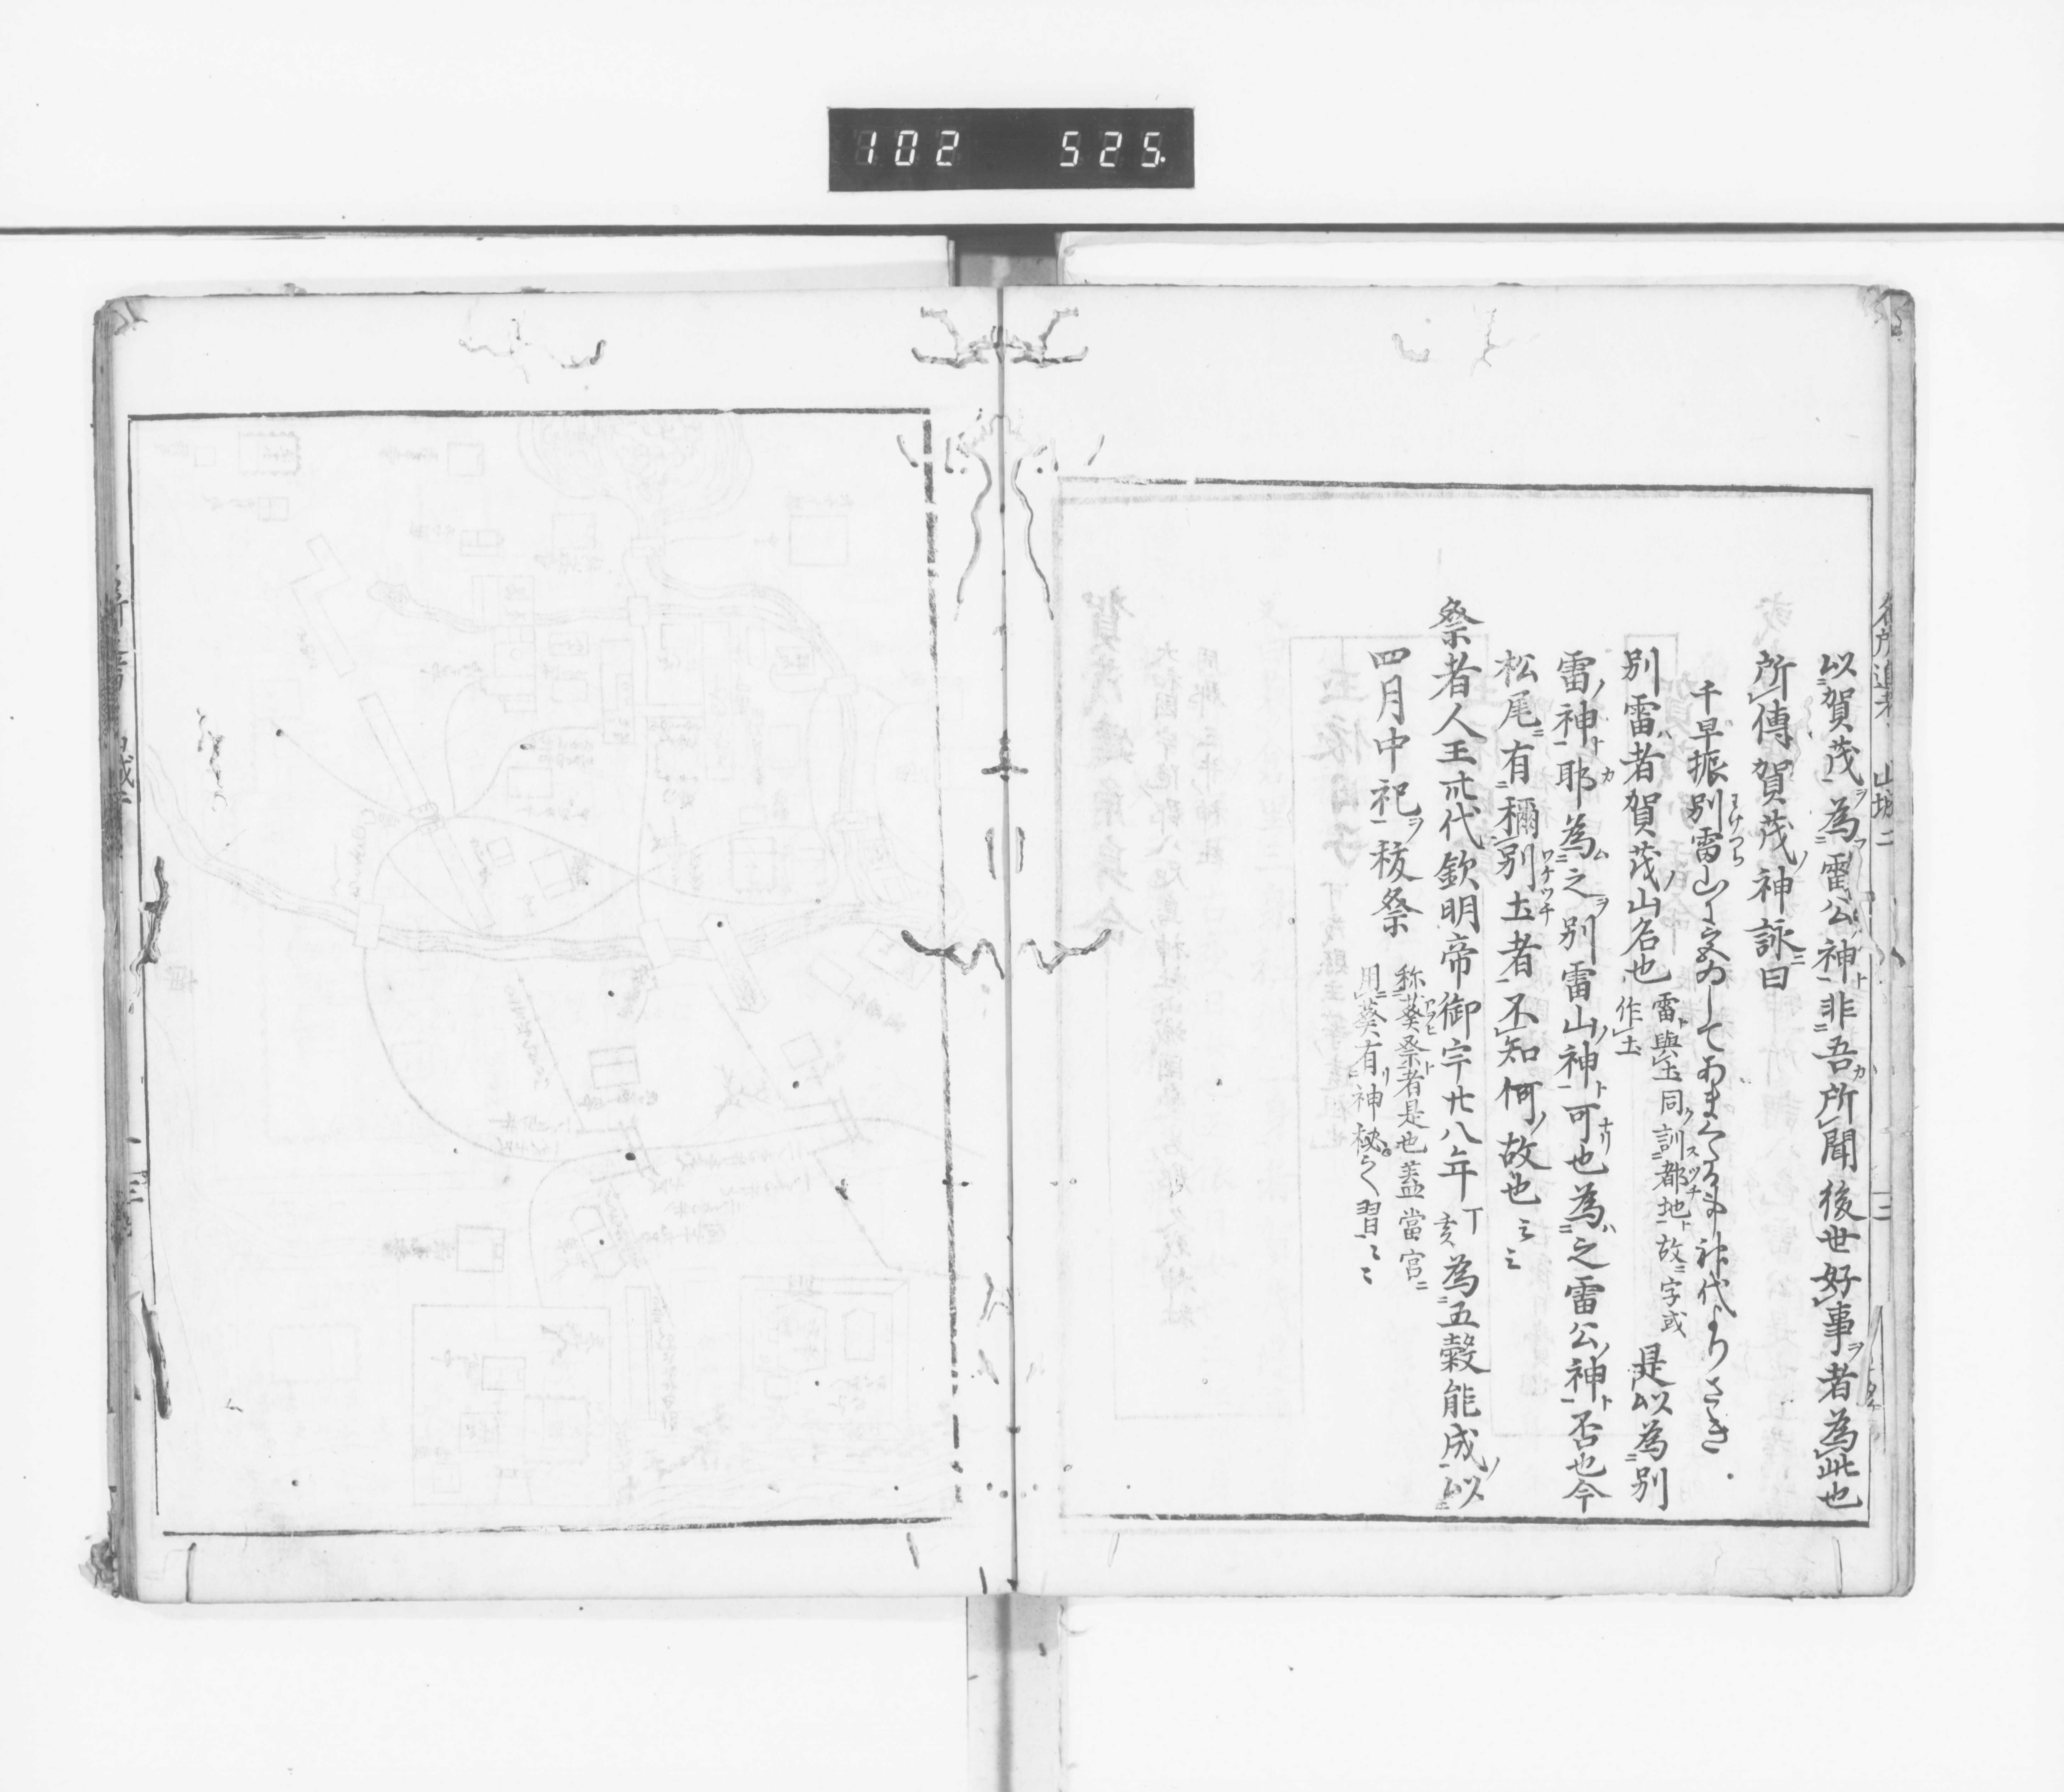 102 525
名所追考 山城二 三
以賀茂為雷公神非吾所聞後世好事者為此也
所傳賀茂神詠曰
千早振別雷山に宮ゐしてあまくたる事神代よりさき
別雷者賀茂山名也
雷與土同訓都地故字或
作土
是以為別
雷神耶為之別雷山神可也為之雷公神否也今
松尾有稱別土者不知何故也云云
祭者人王卅代欽明帝御宇廿八年丁亥為五穀能成以
四月中祀秡祭
称葵祭者是也蓋當宮
用葵有神秘之習云云